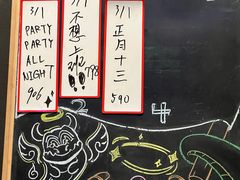 3/1
PARTY
PARTY
ALL
NIGHT
906
不想上班!!
798
3/1
正月十三
590